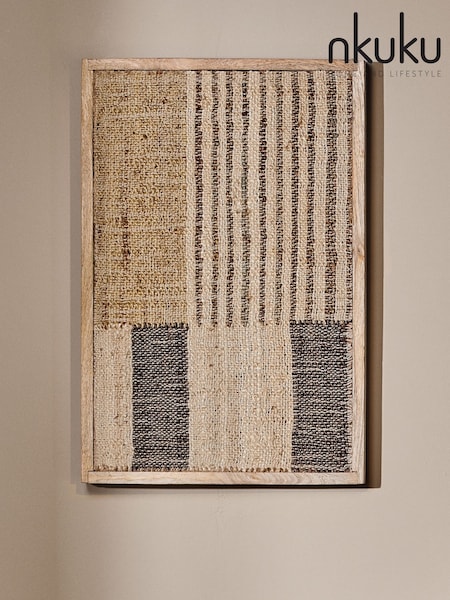 nkuku
LIFESTYLE